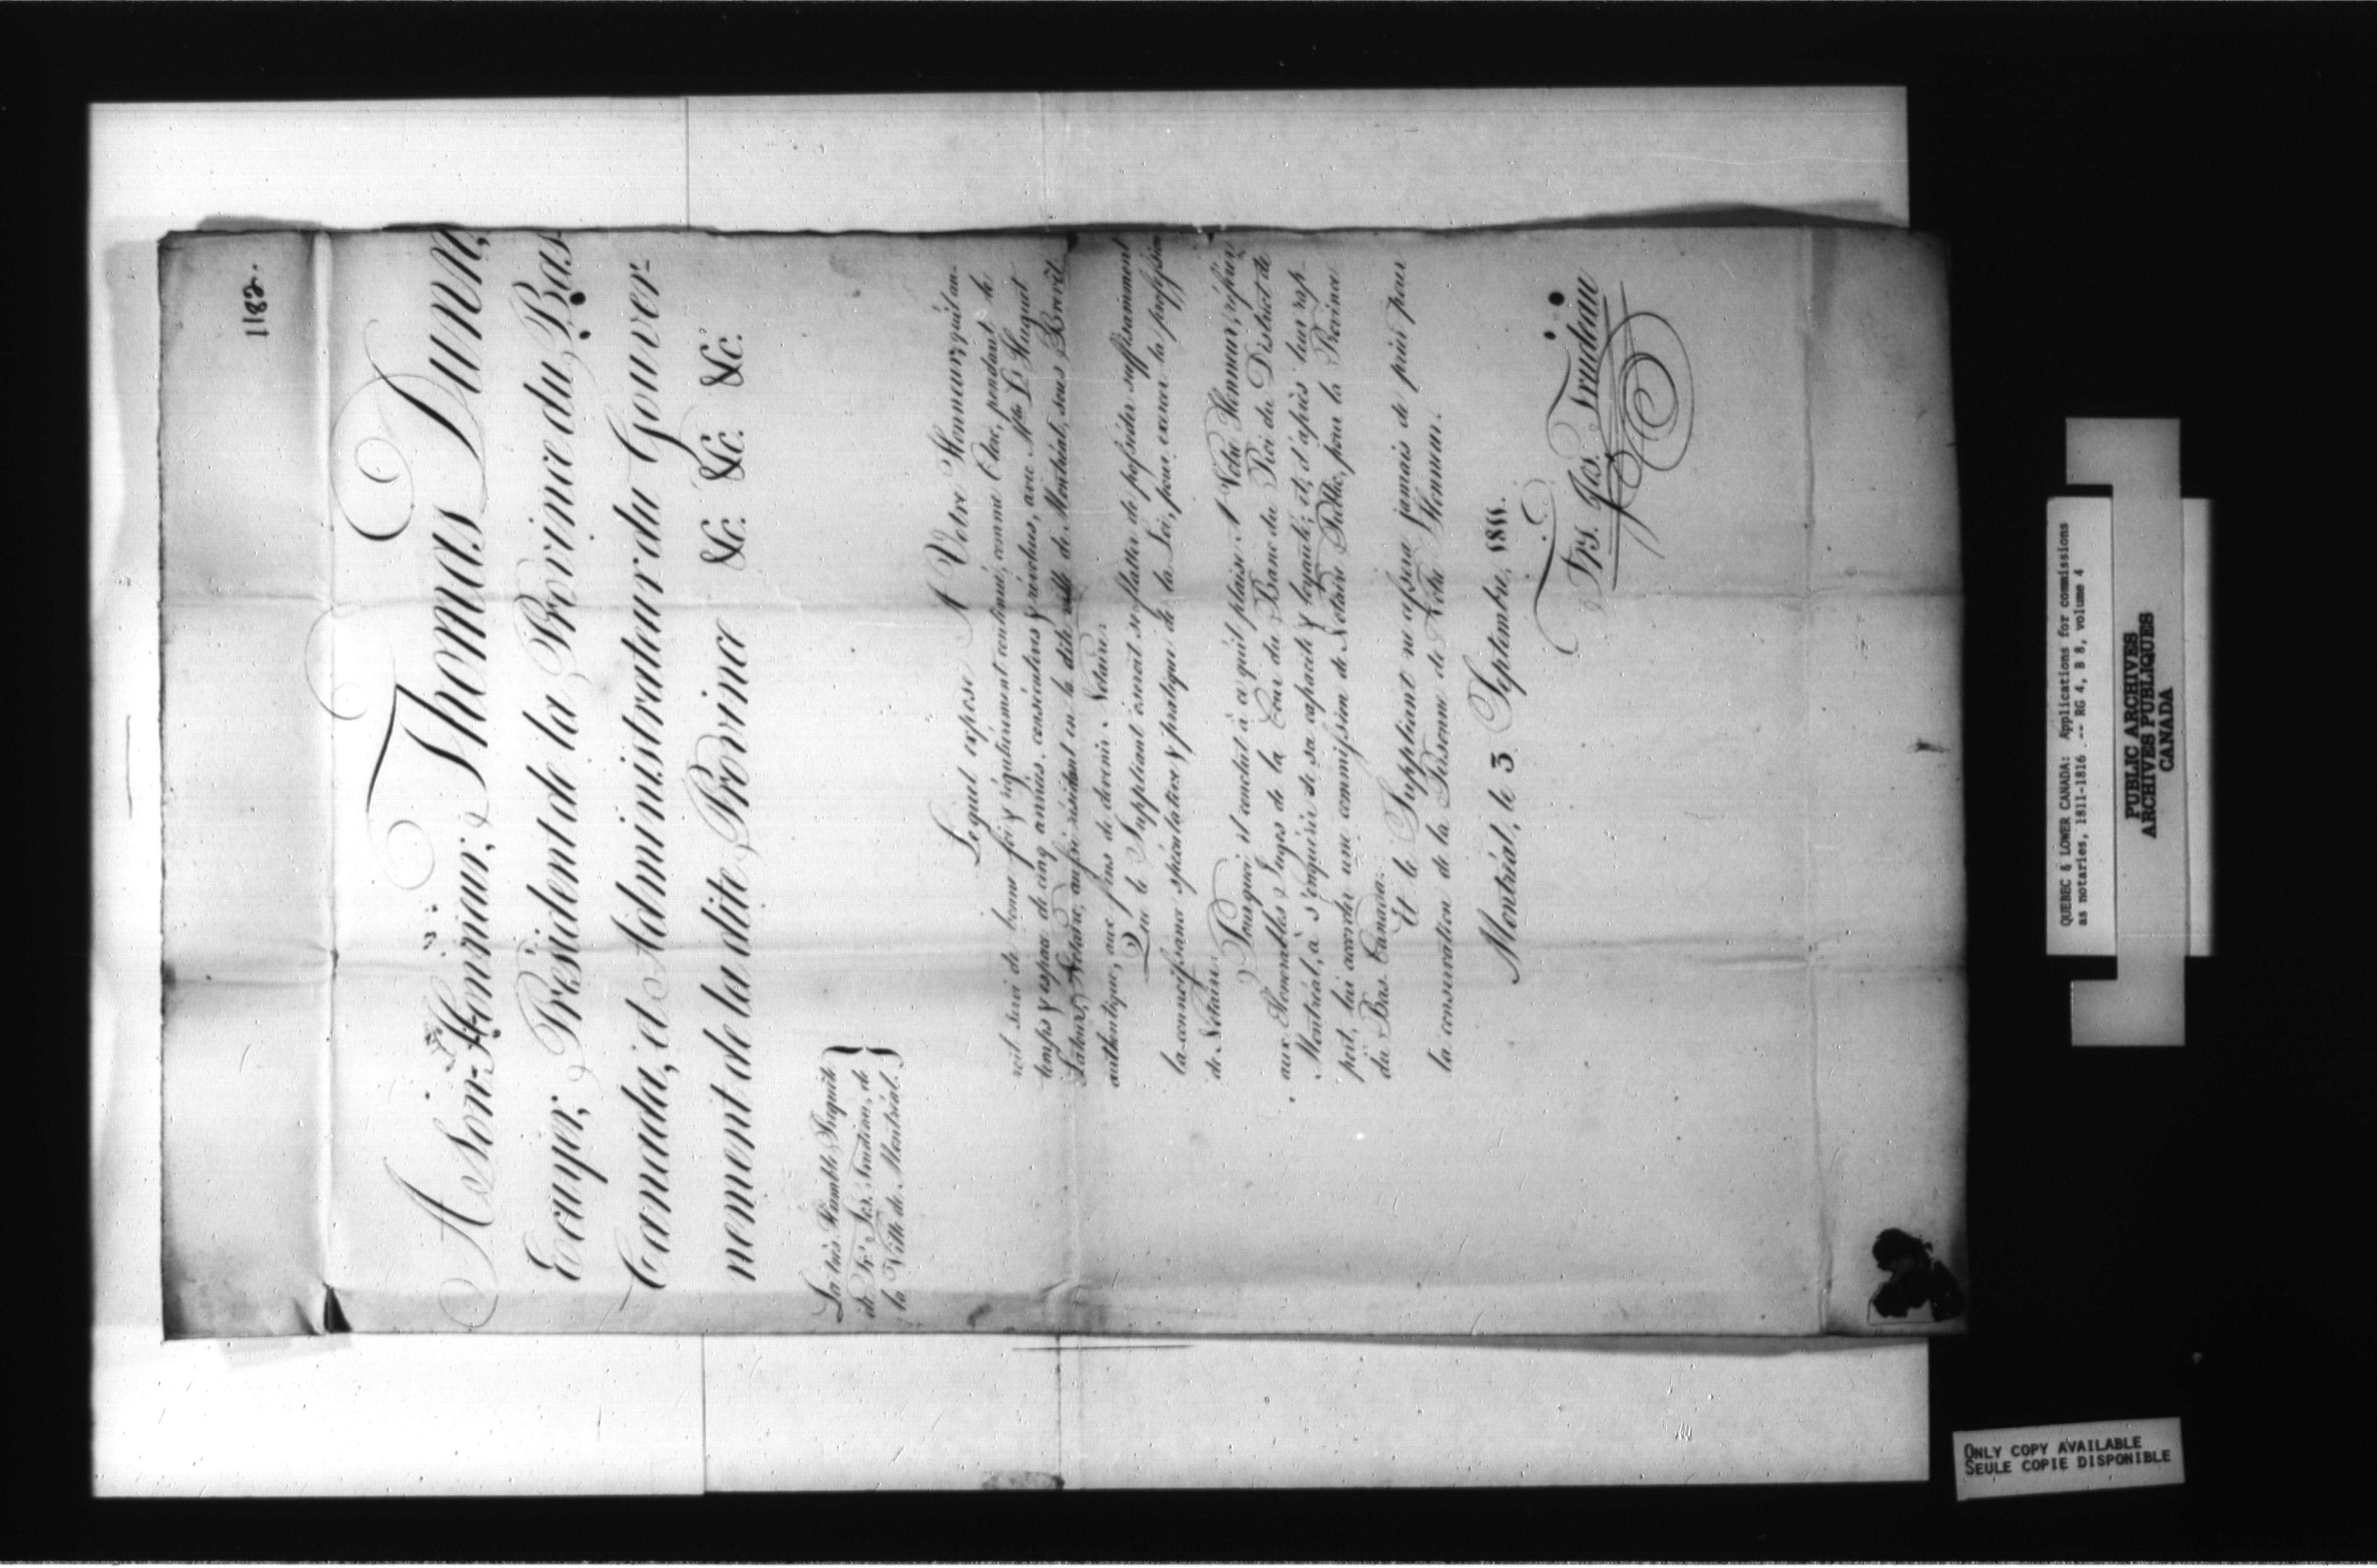 1182.
A Son Honneur, Thomas Dunn,
Ecuyer, Président de la Province du Bas
Canada, et Administrateur du Gouver-
nement de la dite Province &c. &c. &c.
La très Humble Requête
de Frs. Jos. Trudeau, de
la Ville de Montréal.
Lequel expose A Votre Honneur, qu'il au-
roit servi de bonne foi & régulièrement continué, comme Clerc, pendant le
temps & espace de cinq années, consécutives & révolues, avec Mtre. Ls. Huguet
Latour, Notaire, aussi résidant en la dite ville de Montréal, sous Brevêt
authentique, aux fins de devenir Notaire.
Que le Suppliant oseroit se flatter de posséder suffisamment
la connoissance spéculative & pratique de la Loi, pour exercer la profession
de Notaire.
Pourquoi il conclut à ce qu'il plaise A Votre Honneur, référer
aux Honorables Juges de la Cour du Banc du Roi du District de
Montréal, à s'enquérir de sa capacité & loyauté; et, d'après leur rap-
port, lui accorder une commission de Notaire Public, pour la Province
du Bas-Canada.
Et le Suppliant ne cessera jamais de prier pour
la conservation de la Personne de Votre Honneur.
Montréal, le 3 Septembre, 1811.
Frs. Jos. Trudeau
QUEBEC & LOWER CANADA: Applications for commissions
as notaries, 1811-1816 -- RG 4, B 8, volume 4
PUBLIC ARCHIVES
ARCHIVES PUBLIQUES
CANADA
ONLY COPY AVAILABLE
SEULE COPIE DISPONIBLE